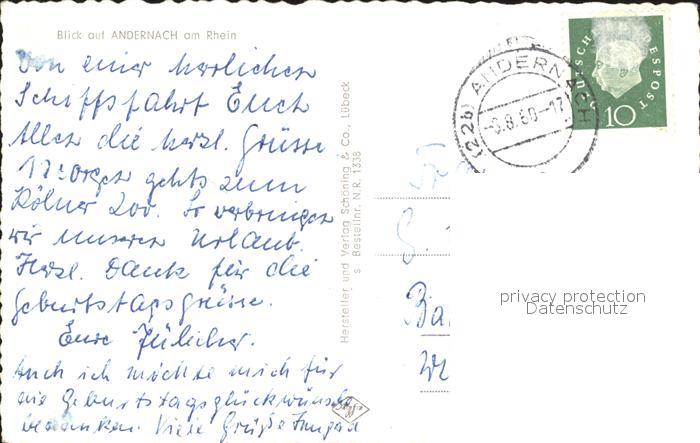 Blick auf ANDERNACH am Rhein
Von einer herrlichen
Schiffsfahrt Euch
Allen die herzl. Grüsse
gehts zum
Kölner Zoo. So verbringen
wir unseren Urlaub.
Herzl. Dank für die
Geburtstagsgrüsse.
Eure Jülicher.
Auch ich möchte mich für
die Geburtstagsglückwünsche
bedanken. Viele Grüße
Hersteller und Verlag Schöning & Co., Lübeck
s Bestellnr. N.R. 1338
Agfa
(22b) ANDERNACH
8.60-17
DEUTSCHE BUNDESPOST
10
privacy protection
Datenschutz